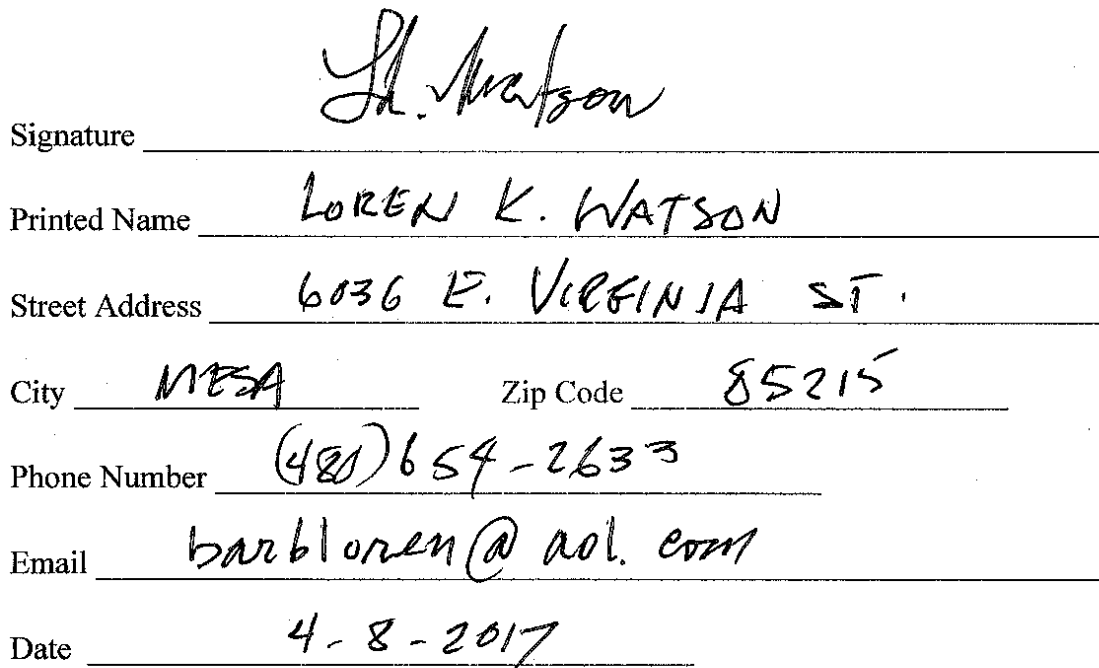 Signature Lk. Watson
Printed Name LOREN K. WATSON
Street Address 6036 E. VIRGINIA ST.
City MESA Zip Code 85215
Phone Number (480) 654-2633
Email barbloren@aol.com
Date 4-8-2017